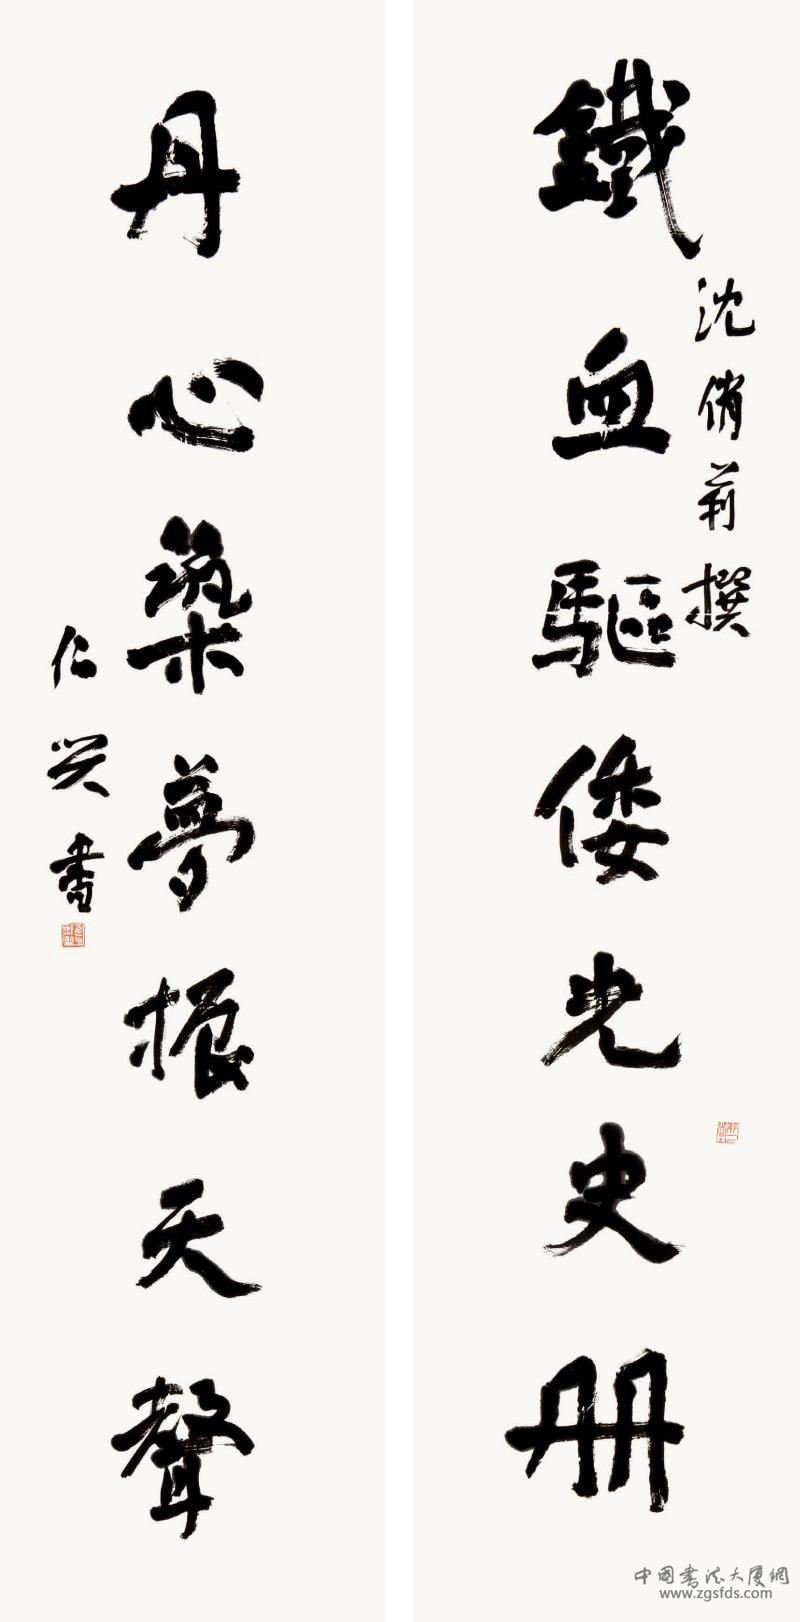 鐵血驅倭光史册
沈俏莉撰
丹心築夢振天聲
仁興書
中国书法大厦網
www.zgsfds.com